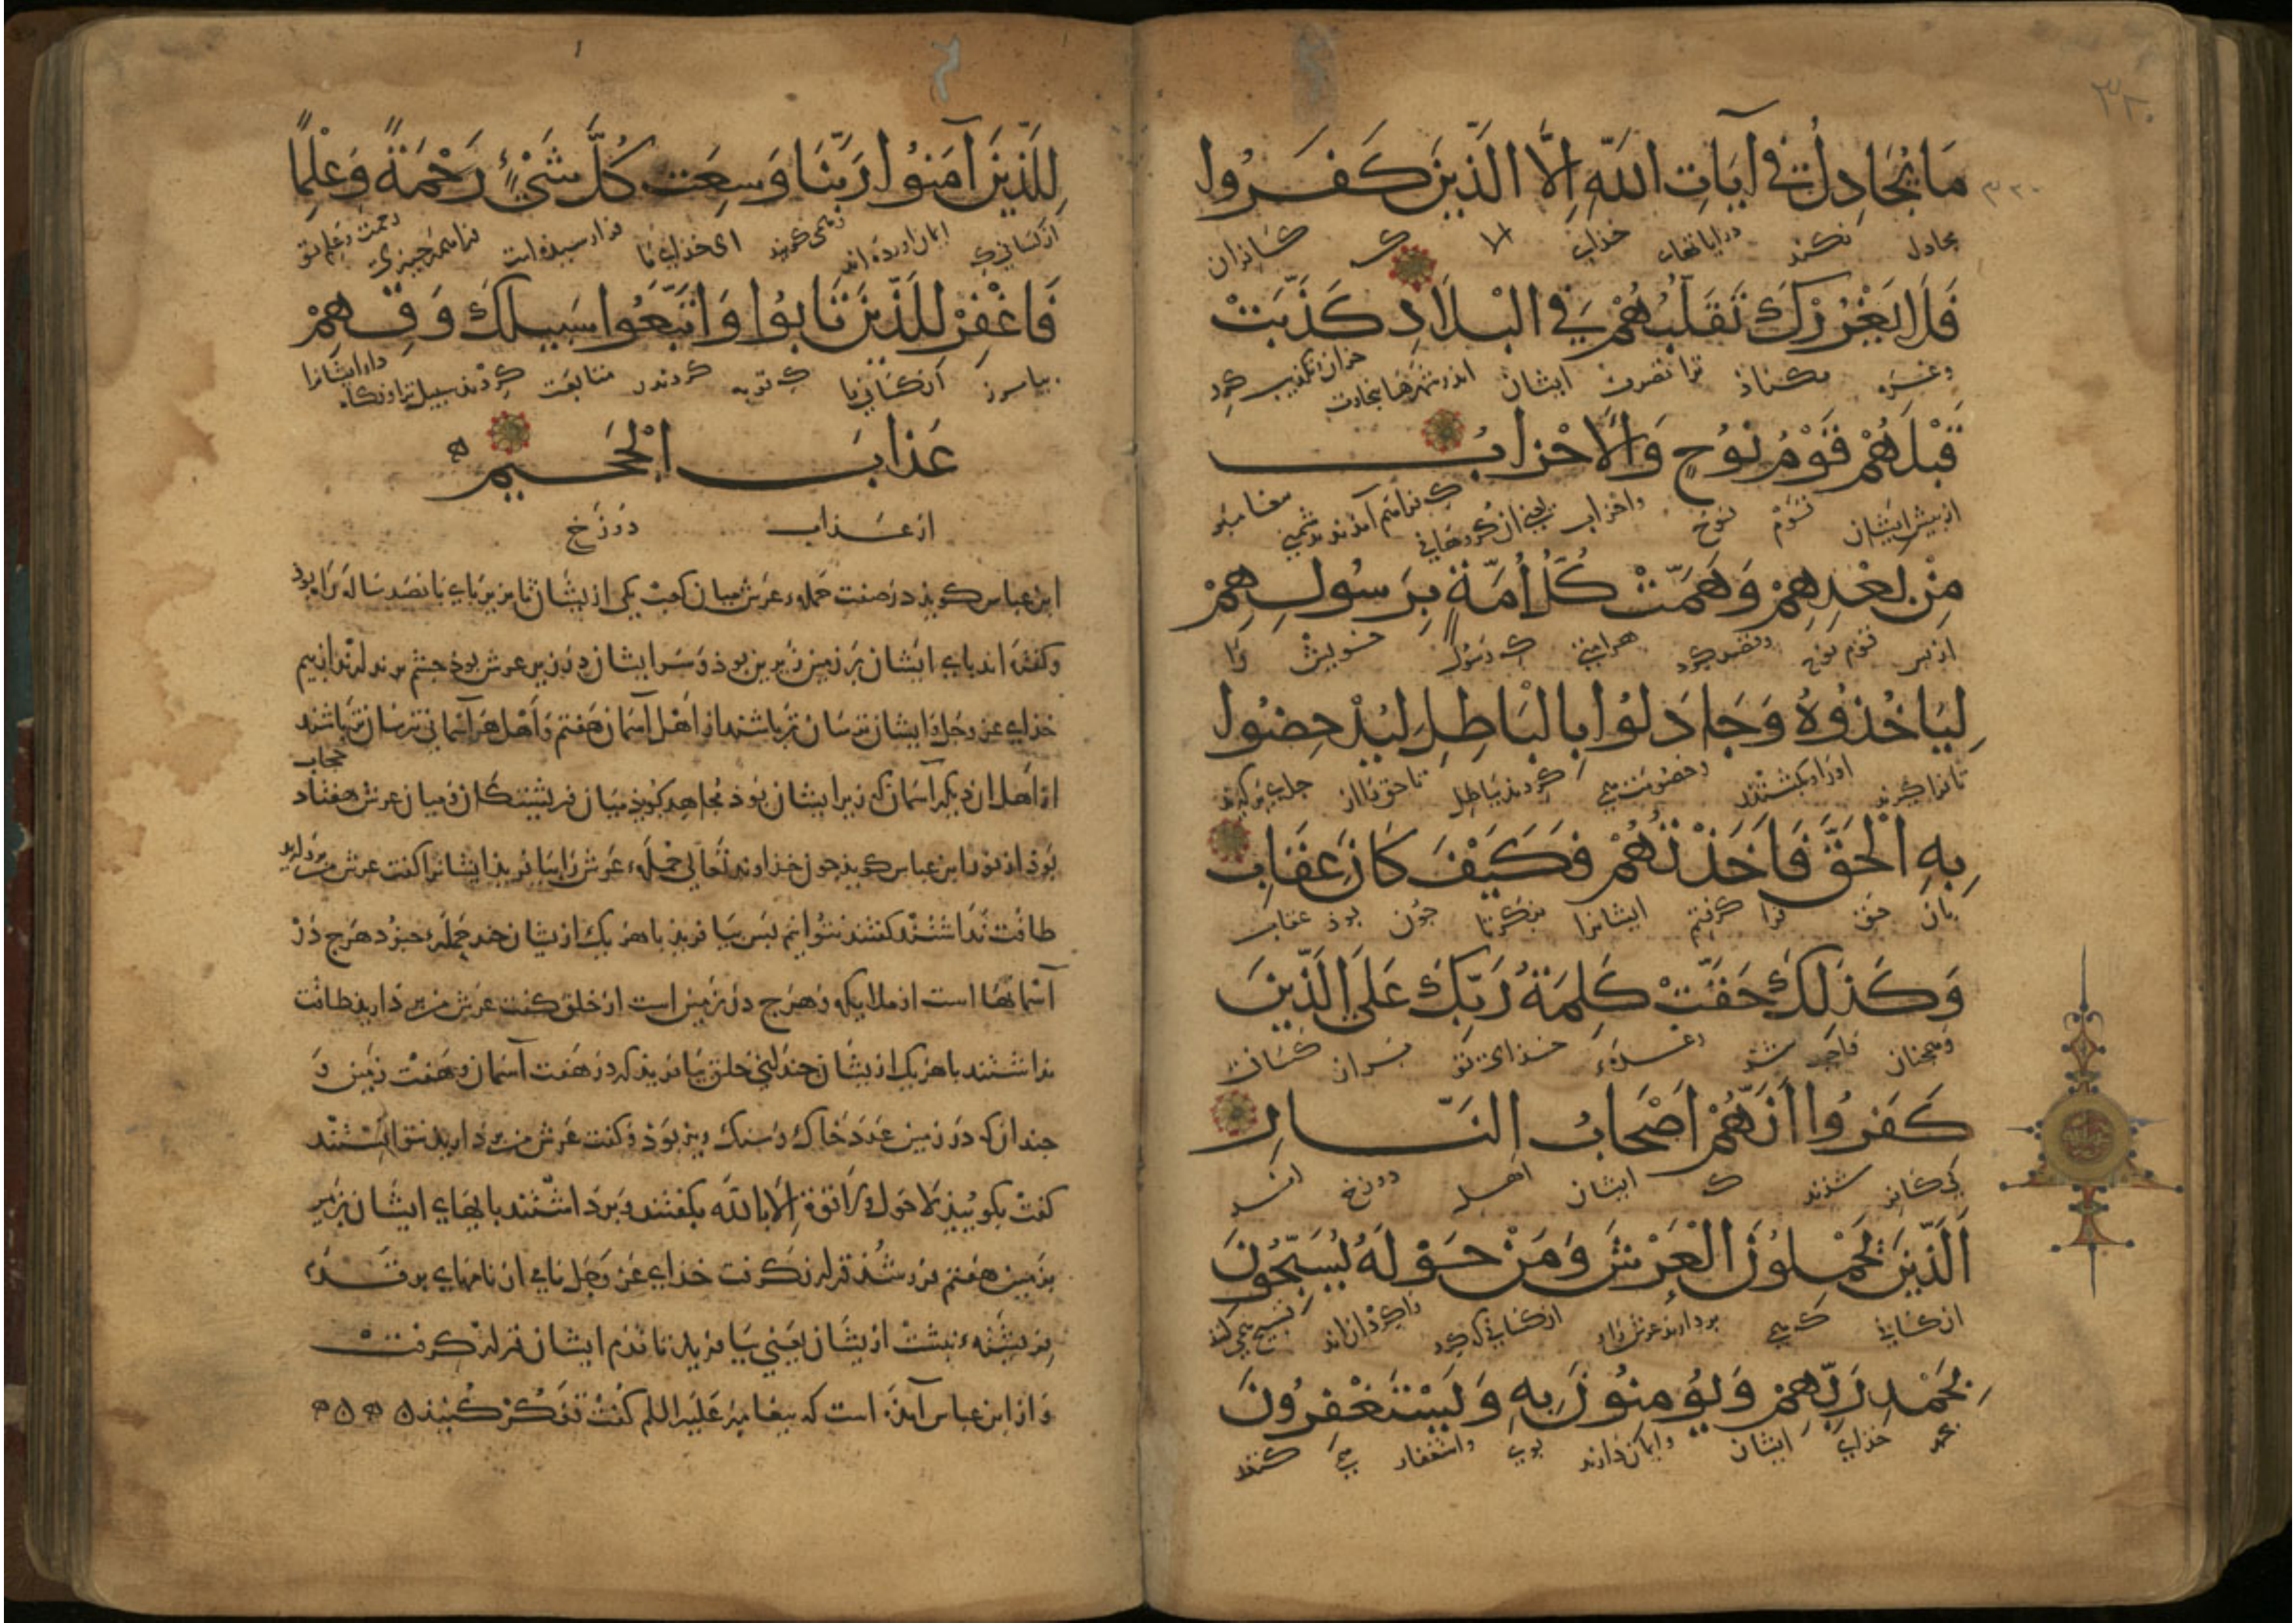 ٣٢٠
مَا يُجَادِلُ فِي آيَاتِ اللَّهِ إِلَّا الَّذِينَ كَفَرُوا
٣٢٠
مجادل نکند در ایاتهاء خدای الا ک کافران
فَلَا يَغْرُرْكَ تَقَلُّبُهُمْ فِي الْبِلَادِ كَذَّبَتْ
وغره مکناذ ترا تصرف ایشان اندر شهرها بتجارت تکذیب کرد
قَبْلَهُمْ قَوْمُ نُوحٍ وَالْأَحْزَابُ
از پیش ایشان قوم نوح واحزاب یعنی ان گروهانی ک فراهم آمدند بدشمنی پیغامبر
مِنْ بَعْدِهِمْ وَهَمَّتْ كُلُّ أُمَّةٍ بِرَسُولِهِمْ
از پس قوم نوح وقصد کرد هر امتی ک رسول خویش را
لِيَأْخُذُوهُ وَجَادَلُوا بِالْبَاطِلِ لِيُدْحِضُوا
تا فرا گیرند اورا وبکشند وخصومت می کردند بباطل تا حق را از جای برگیرند
بِهِ الْحَقَّ فَأَخَذْتُهُمْ فَكَيْفَ كَانَ عِقَابِ
بان حق فرا گرفتم ایشانرا بنگر تا جون بوذ عقاب
وَكَذَلِكَ حَقَّتْ كَلِمَةُ رَبِّكَ عَلَى الَّذِينَ
وهمجنان واجب شد وعدهٔ خدای تو بران کسانی
كَفَرُوا أَنَّهُمْ أَصْحَابُ النَّارِ
کی کافر شدند ک ایشان اهل دوزخ اند
الَّذِينَ يَحْمِلُونَ الْعَرْشَ وَمَنْ حَوْلَهُ يُسَبِّحُونَ
ان کسانی که می بردارند عرش را و ان کسانی که گرد واگرد ان اند تسبیح می کنند
بِحَمْدِ رَبِّهِمْ وَيُؤْمِنُونَ بِهِ وَيَسْتَغْفِرُونَ
بحمد خدای ایشان وایمان دارند بوی واستغفار می کنند
لِلَّذِينَ آمَنُوا رَبَّنَا وَسِعَتْ كُلَّ شَيْءٍ رَحْمَةً وَعِلْمًا
از کسانی ک ایمان اورده اند ومی گویند ای خذای ما فرا رسیده است فرا همه جیزی رحمت وعلم تو
فَاغْفِرْ لِلَّذِينَ تَابُوا وَاتَّبَعُوا سَبِيلَكَ وَقِهِمْ
بیامرز ان کسانی را ک توبه کردند و متابعت کردند سبیل ترا ونگاه دار ایشانرا
عَذَابَ الْجَحِيمِ
از عذاب دوزخ
ابن عباس گوید در صفت حملهء عرش میان کعب یکی از یشان تا بزیر پای پانصد ساله راه بود
وگفته اند پای ایشان بر زمین زیرین بوذ وسر ایشان در زیر عرش بوذ جشم بر ندارند از بیم
خذای عز وجل وایشان ترسان تر باشند از اهل آسمان هفتم واهل هر آسمانی ترسان تر باشند
از اهل ان دیگر آسمان که زیر ایشان بوذ مجاهد گوید میان فریشتگان ومیان عرش هفتاد حجاب
بوذ از نور ابن عباس گوید جون خذاوند تعالی حملهء عرش را بیافرید ایشانرا گفت عرش من بردارید
طاقت نداشتند گفتند نتوانیم پس بیافرید با هر یک از یشان جند جملهء هرج در
آسمانها است از ملایکه وهرج در زمین است از خلق گفت عرش من بردارید طاقت
نداشتند با هر یک از یشان جندانی خلق بیافرید که در هفت آسمان وهفت زمین و
جندانک در زمین عدد خاک وسنگ ریز بوذ وگفت عرش من بردارید نتوانستند
گفت بگویید لا حول ولا قوة الا بالله بگفتند وبرداشتند پایهای ایشان بزیر
زمین هفتم فرو شذ قرار نگرفت خذای عز وجل نامی از نامهای بر قدم
فریشتهء نبشت از یشان یعنی بیافرید تا قدم ایشان قرار گرفت
واز ابن عباس آمذه است که پیغامبر علیه السلم گفت تفکر کنید